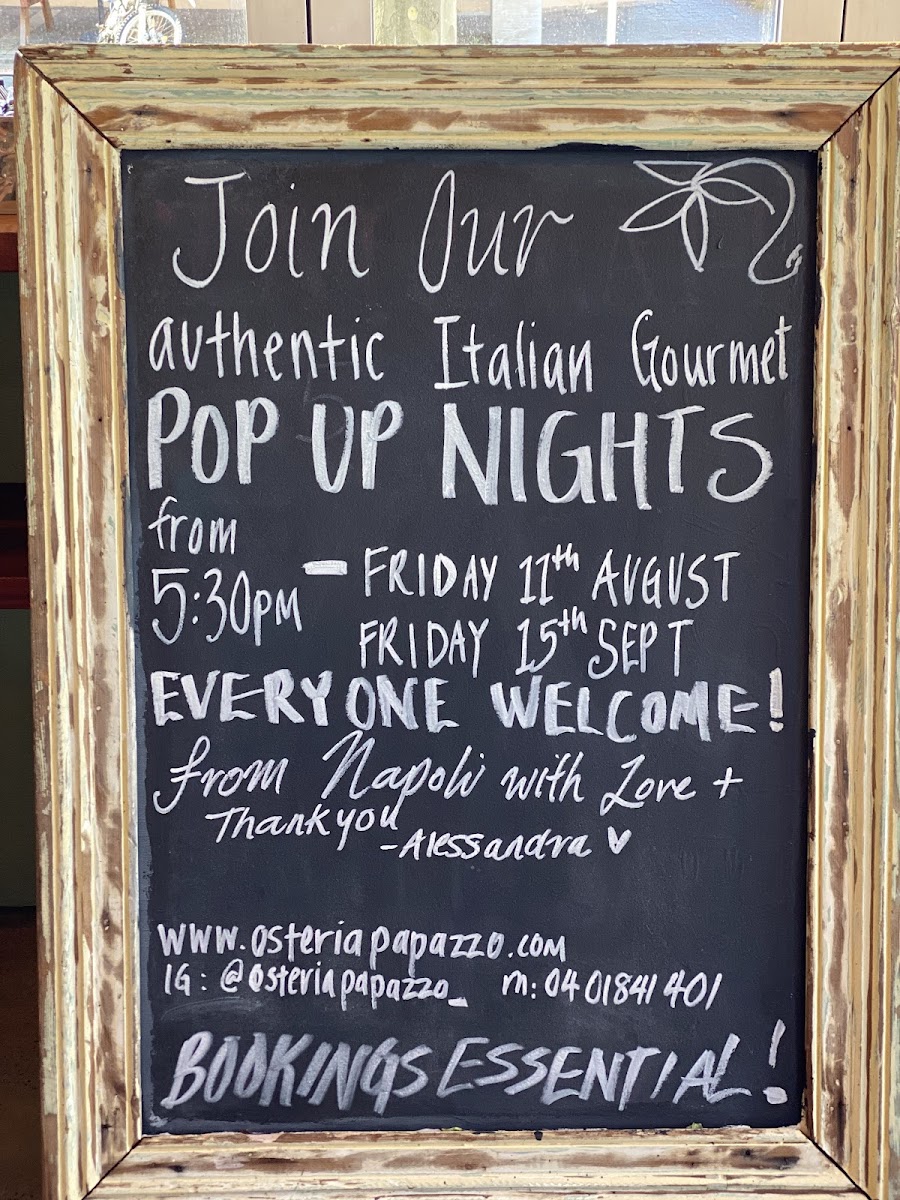 Join Our
authentic Italian Gourmet
POP UP NIGHTS
from
5:30PM - FRIDAY 11th AUGUST
FRIDAY 15th SEPT
EVERYONE WELCOME!
from Napoli with Love +
Thankyou
-Alessandra
www.osteriapapazzo.com
IG: @osteriapapazzo_ m: 04 01841 401
BOOKINGS ESSENTIAL!